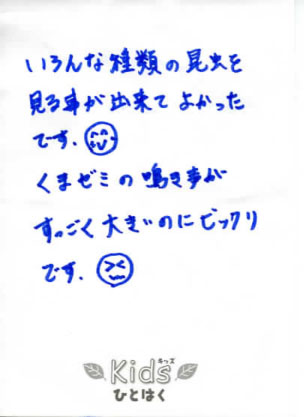 いろんな種類の昆虫を
見る事が出来てよかった
です.
くまゼミの鳴き事が
すっごく大きいのにビックリ
です.
キッズ
Kids
ひとはく